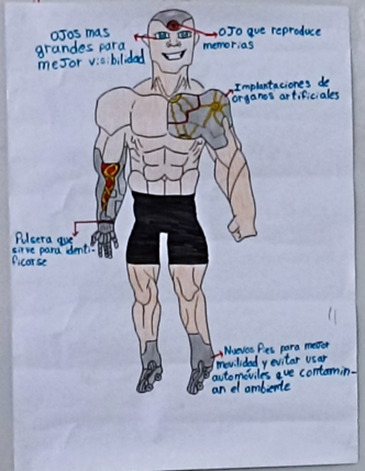 Ojos mas
grandes para
mejor visibilidad
Ojo que reproduce
memorias
Implantaciones de
organos artificiales
Pulsera que
sirve para identi-
ficarse
Nuevos Pies para mejor
movilidad y evitar usar
automóviles que contamin-
an el ambiente